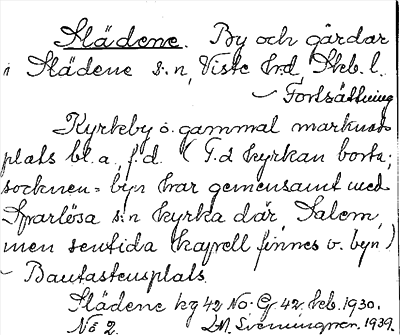 Slädene. By och gårdar
i Slädene s:n, Viste hrd, Skb. l.
~ Fortsättning
Kyrkeby o. gammal marknads
plats bl. a. f.d. (F.d kyrkan borta;
socknen = byn har gemensamt med
Sparlösa s:n kyrka där, Salem,
men sentida kapell finnes v. byn)
~ Bautastensplats
Slädene kg 42 No. G. 42. feb. 1930.
No 2. Sveningner. 1939.